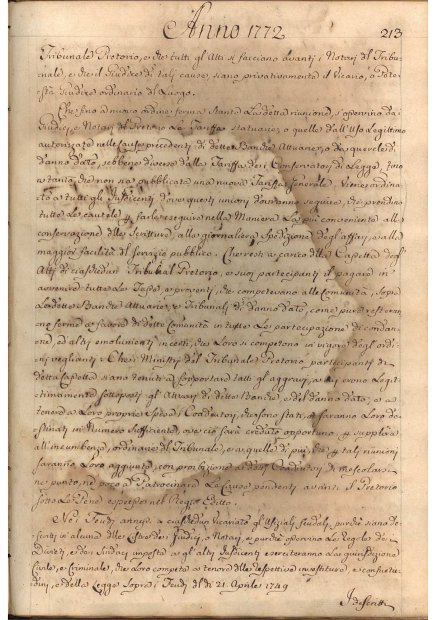 Anno 1772
213
Tribunale Pretorio, e che tutti gl'Atti si facciano avanti i Notari del Tribu-
nale, e che il Giudice di tali cause, siano privativamente il Vicario, o Pote-
stà Giudice ordinario di Luogo.
Che fino a nuovo ordine ferma stante la detta riunione, s'osservino da
Giudici, e Notari del Pretorio le Tariffe statuarie, o quelle dall'Uso legittimo
autorizzate nelle Cause precedenti di dette Bande Attuarie, e di querele di
danno dato, sebbene diverse dalla Tariffa dei Conservatori di Legge, fino
a tanto, che non sia pubblicata una nuova Tariffa Generale. Viene ordina-
to a tutti gli Iusdicenti dove questi unioni dovranno seguire, che prendino
tutte le cautele, e farle eseguire nella Maniera la più conveniente alla
conservazione delle Scritture, alla giornaliera Spedizione degl'affari, e alla
maggior facilità del servizio pubblico. Che resti a carico della Cassetta degl'
Atti di ciaschedun Tribunal Pretorio, e suoi partecipanti il pagare in
avvenire tutte le Tasse, e proventi, che competevano alle Comunità, sopra
le dette Bande Attuarie, e Tribunali di danno dato, come pure resteran-
no ferme a favore di dette Comunità in tutto le partecipazione di condan-
ne, ed altri emolumenti incerti, che loro si competono in vigore degl'ordi-
ni veglianti. Che i Ministri del Tribunale Pretorio partecipanti di
detta Cassetta siano tenuti a sopportare tutti gl'aggravi, a cui erono legit-
timamente sottoposti gli Attuari di dette Bande, e del danno dato, e a
tenere a Loro proprie Spese i Coadiutori, che sono stati, o saranno Loro de-
stinati in Numero Sufficiente, e se ciò sarà creduto opportuno, per supplire
all'incumbenze, ordinarie del Tribunale, e a quelle di più, che per tali riunioni
saranno Loro aggiunte, con proibizione a detti Coadiutori di mescolarsi
ne punto, ne poco a Patrocinare le Cause pendenti avanti il Pretorio
sotto le Pene espresse nel Regio Editto.
Ne i Feudi annessi a ciaschedun Vicariato gl'Ufiziali Feudali, purchè siano de-
scritti in alcuna delle Classe dei Giudici, o Notari, e purchè osservino le Regole, di-
vieti, e doveri dai imposta per gl'altri Iusdicenti eserciteranno la Giurisdizione
Civile, e Criminale, che Loro compete a tenore delle respettive investiture, e consuetu-
dini, e della Legge Sopra i Feudi del dì 21. Aprile 1749
I descritti